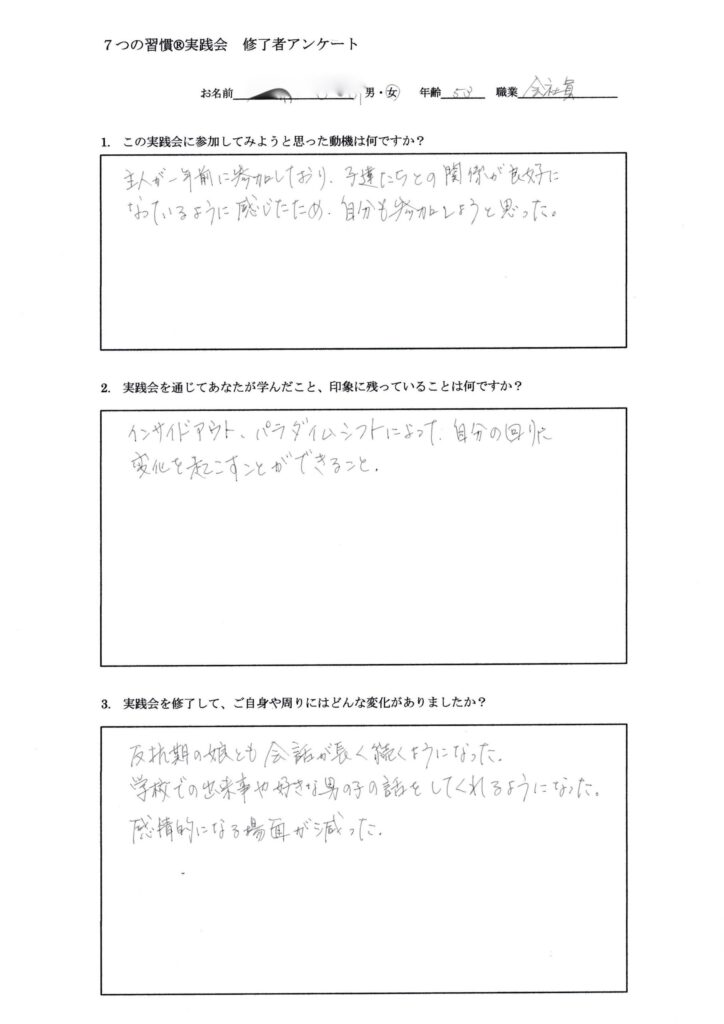 7つの習慣®実践会　修了者アンケート
お名前 男・女 年齢 職業 会社員
1. この実践会に参加してみようと思った動機は何ですか?
主人が一年前に参加しており、子達たちとの関係が良好に
なっているように感じたため、自分も参加しようと思った。
2. 実践会を通じてあなたが学んだこと、印象に残っていることは何ですか?
インサイドアウト、パラダイムシフトによって、自分の回りに
変化を起こすことができること。
3. 実践会を修了して、ご自身や周りにはどんな変化がありましたか?
反抗期の娘とも会話が長く続くようになった。
学校での出来事や好きな男の子の話をしてくれるようになった。
感情的になる場面が減った。